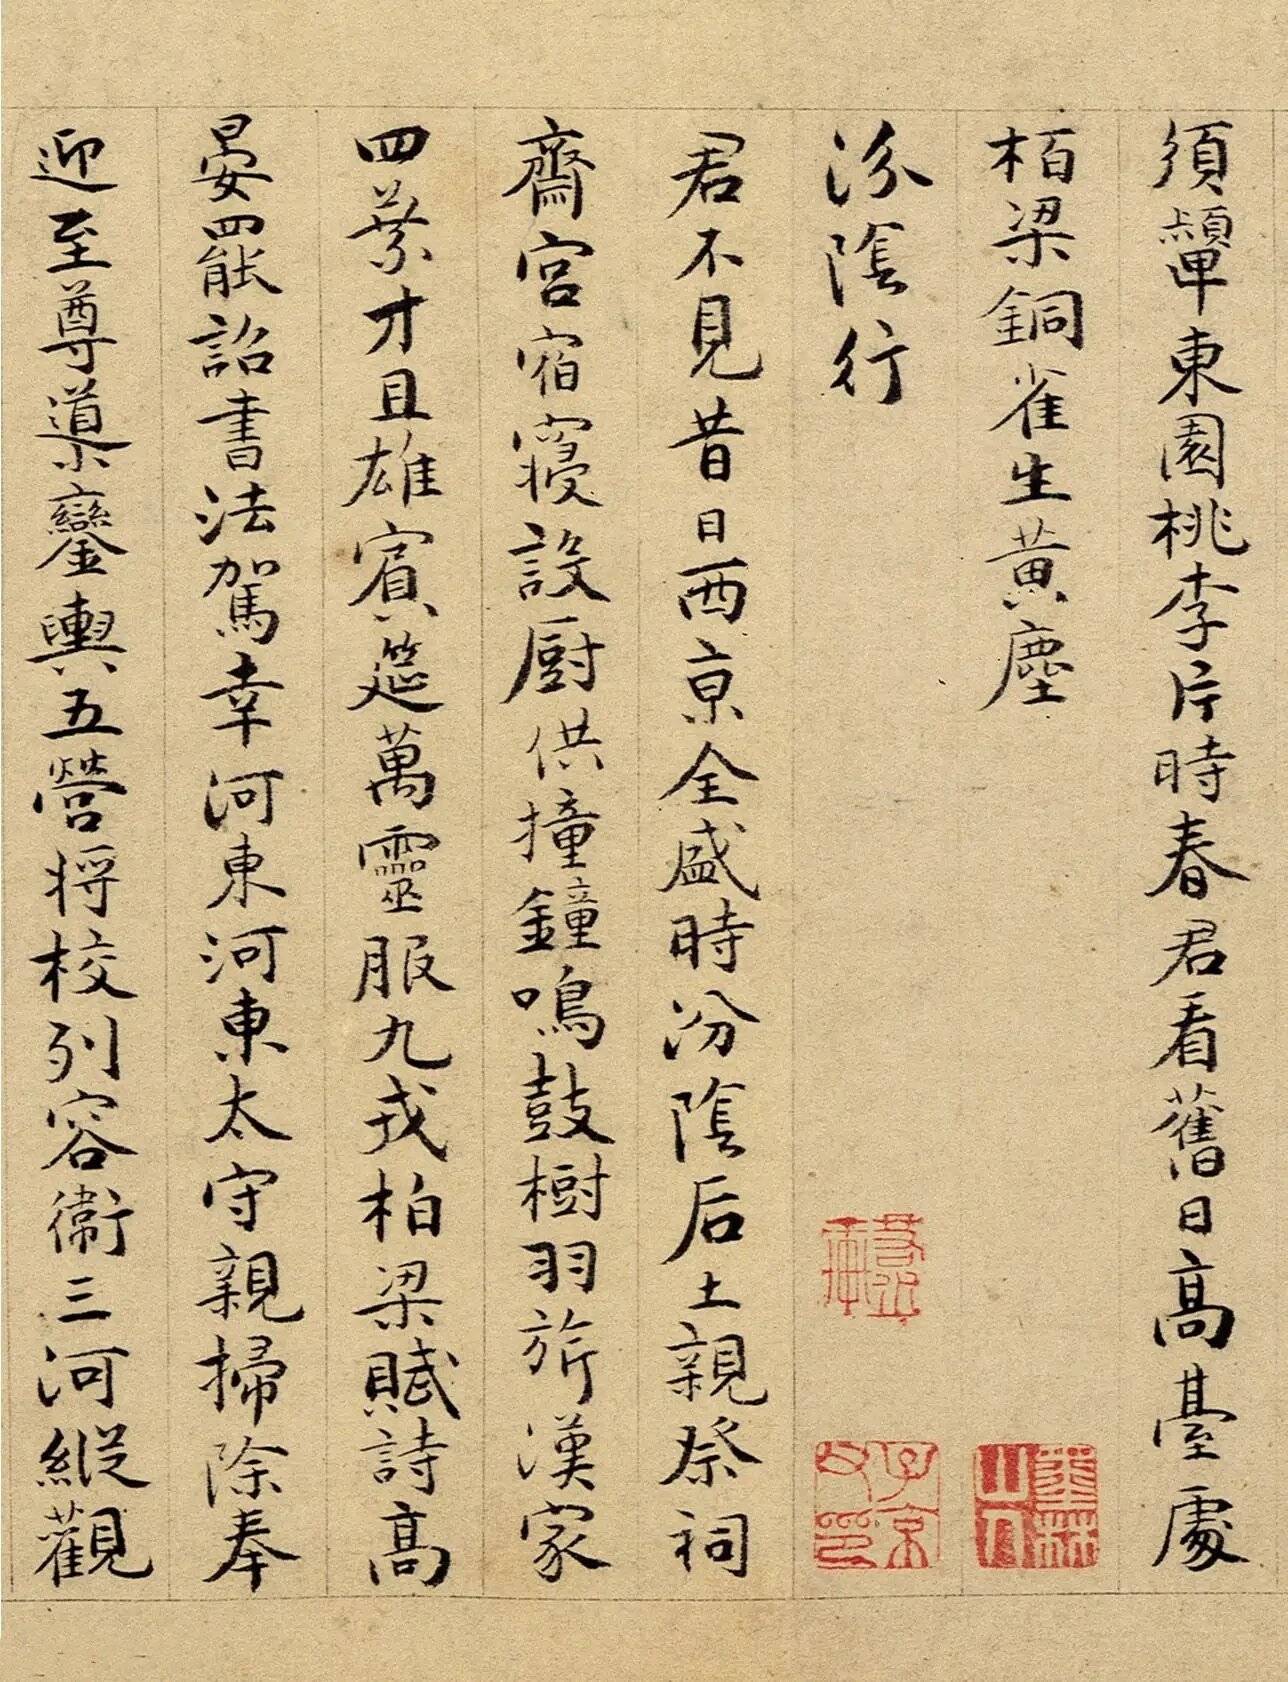 須顰東園桃李片時春君看舊日高臺處
栢梁銅雀生黃塵
汾陰行
君不見昔日西京全盛時汾陰后土親祭祠
齋宮宿寢設厨供撞鐘鳴鼓樹羽旂漢家
四葉才且雄賓筵萬靈服九戎柏梁賦詩高
晏罷詔書法駕幸河東河東太守親掃除奉
迎至尊導鑾輿五營将校列容衛三河縱觀
子京